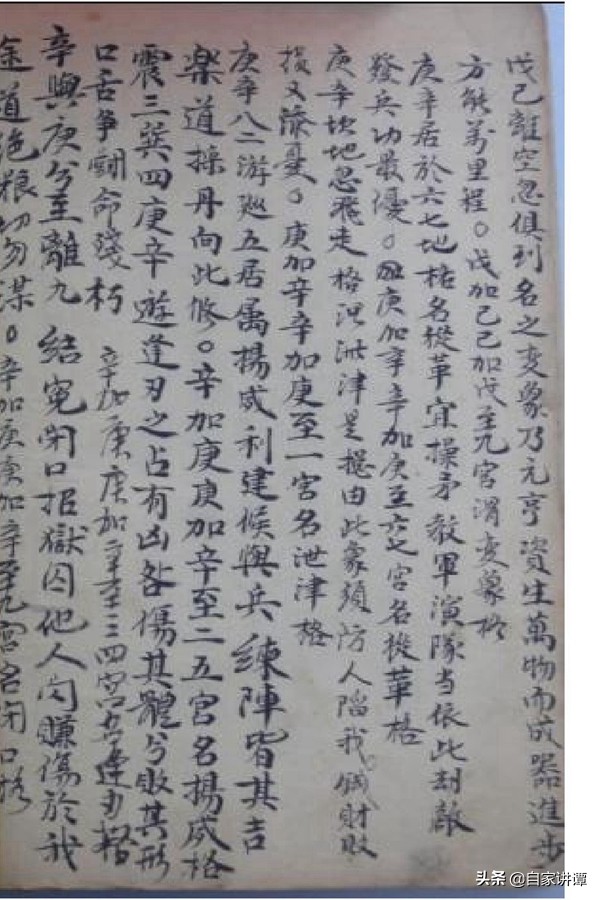 戊己離空忽俱到名之变象乃元亨資生萬物而成器進步
方能萬里程。戊加己己加戊至九宫渭变象格
庚辛居於六七地格名從革宜操矛教軍演隊与依此刼敵
發兵功最優。庚加辛辛加庚至六七宫名從革格
庚辛坎地忽飛走格泄津是媱由此象須防人陷我財敗
损又添憂。庚加辛辛加庚至一宫名泄津格
庚辛八二游廵五居禹揚咸利建候與兵練陣皆其吉
楽道採丹向此修。辛加庚庚加辛至二五宫名揚威格
震三巽四庚辛遊逢刃之占有凶咎傷其體兮敗其形
口舌争翻命残朽 辛加庚庚加辛至三四宫名逢刃格
辛與庚兮至離九 結寃闭口招獄囚他人闪賺傷於我
途道绝粮切勿谋。辛加庚庚加辛至九宫名闭口格
头条 @自家讲谭